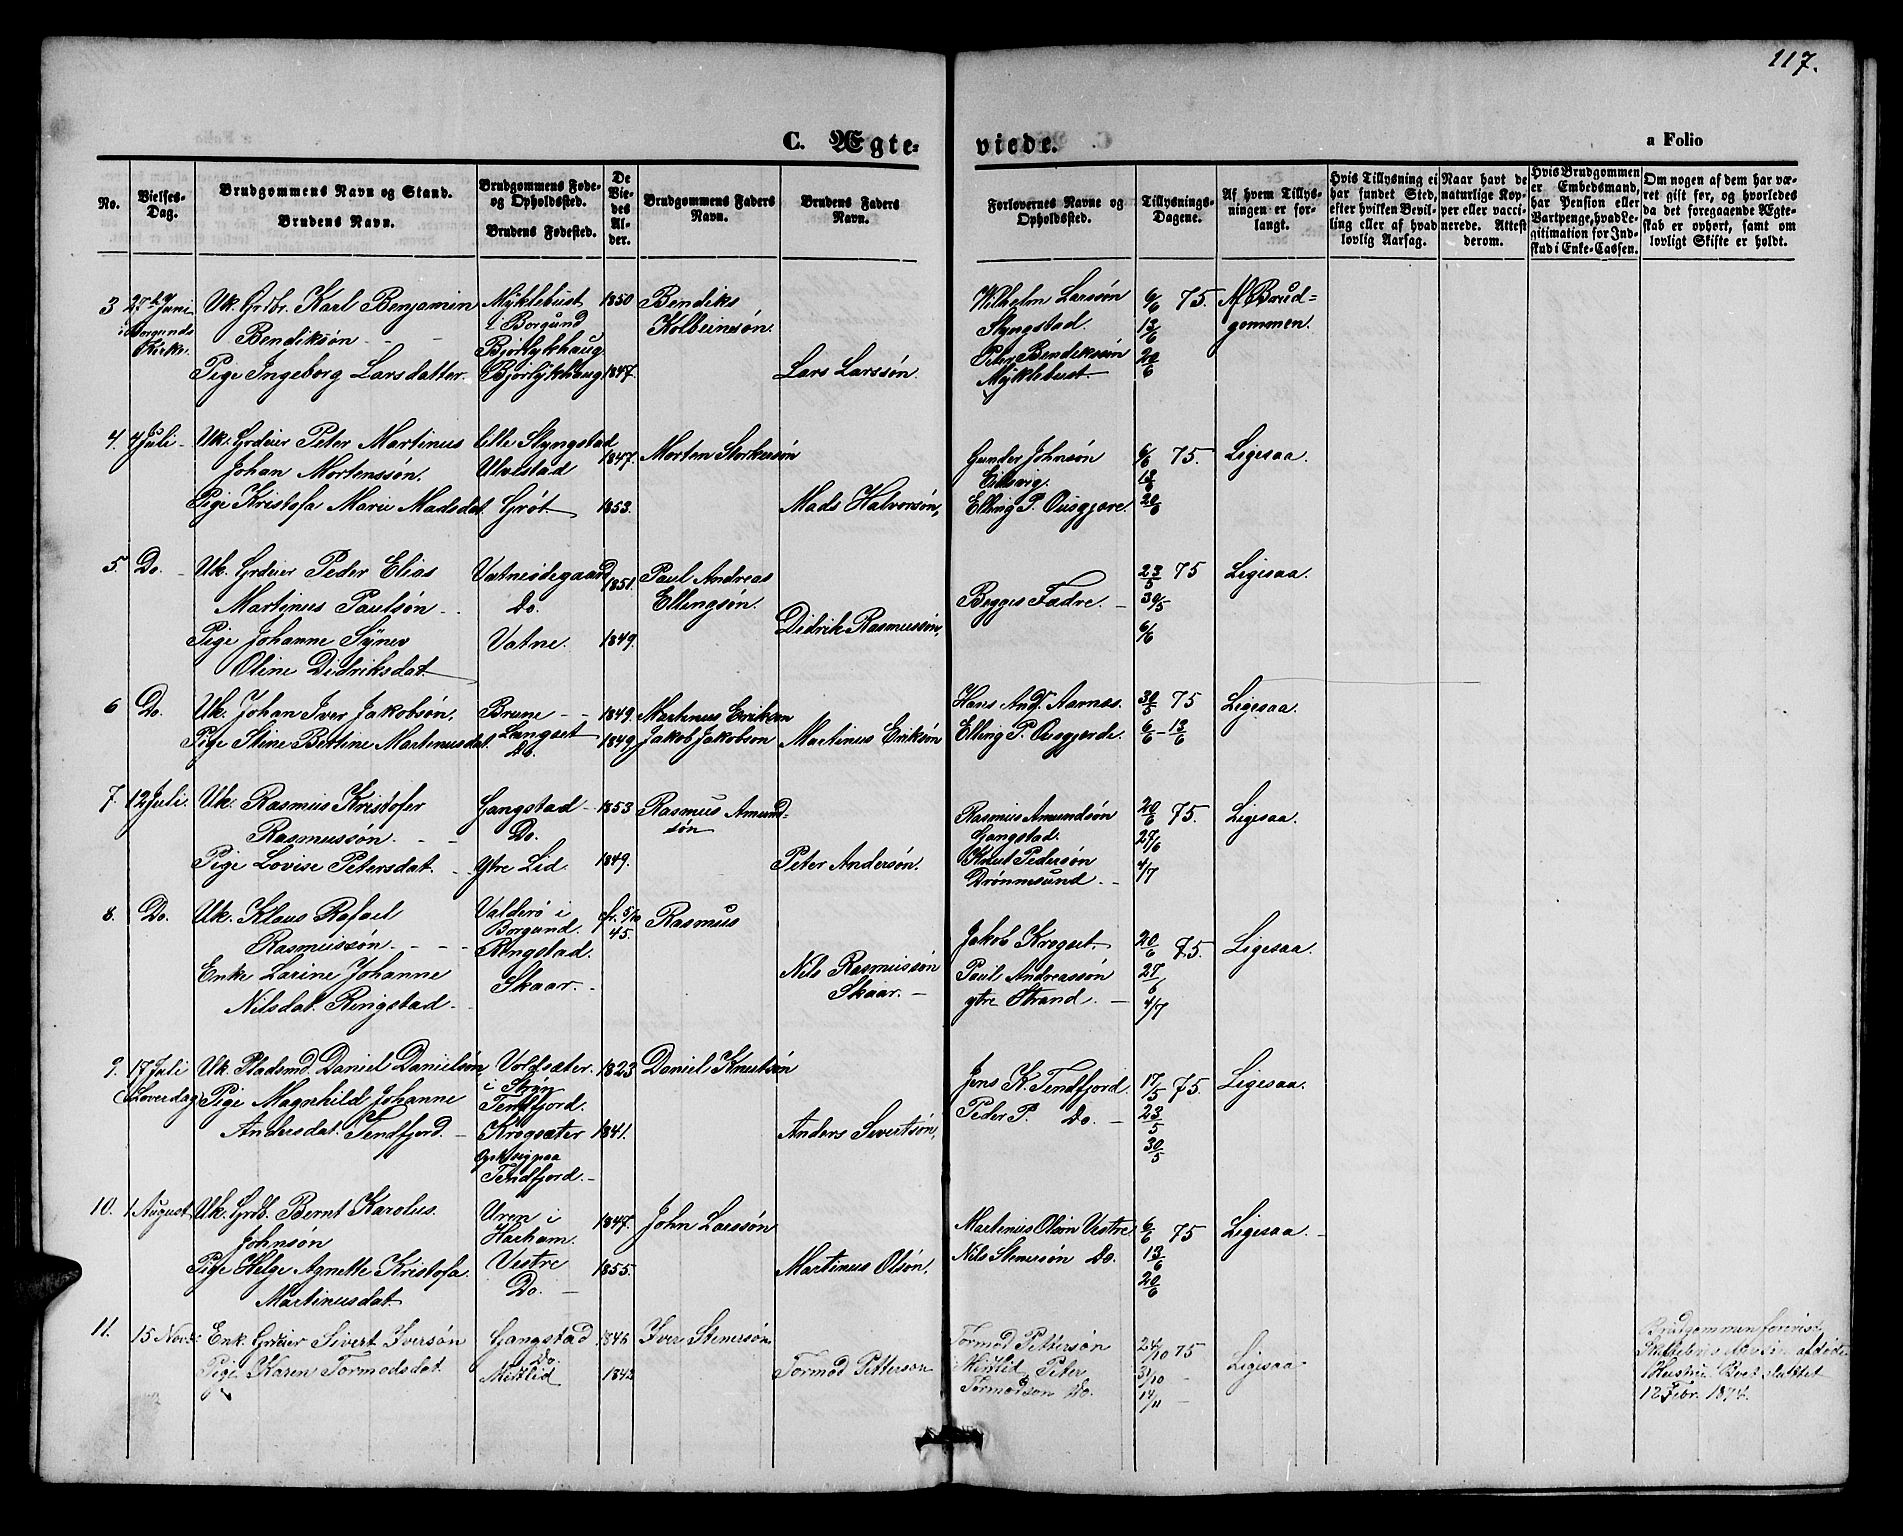 117.
C. Ægte-
viede.
a Folio
No.
Vielses-
Dag.
Brudgommens Navn og Stand.
Brudens Navn.
Brudgommens Føde-
og Opholdssted.
Brudens Fødested.
De
Vie-
des
Al-
der.
Brudgommens Faders
Navn.
Brudens Faders
Navn.
Forlovernes Navne og
Opholdssted.
Tillysnings-
Dagene.
Af hvem Tillys-
ningen er for-
langt.
Hvis Tillysning ei
har fundet Sted,
efter hvilken Bevil-
ling eller af hvad
lovlig Aarsag.
Naar havt de
naturlige Kop-
per eller vacci-
nerede. Attest
derom.
Hvis Brudgommen
er Embedsmand,
har Pension eller
Vartpenge, hvad Le-
gitimation for Ind-
skud i Enke-Cassen.
Om nogen af dem har væ-
ret gift før, og hvorledes
da det foregaaende Ægte-
skab er ophørt, samt om
lovligt Skifte er holdt.
3 27de Juni
i Borgunds
Kirke.
Uk. Grdbr. Karl Benjamin
Bendiksøn
Pige Ingeborg Larsdatter.
Myklebust
i Borgund
Bjørlykhaug
Bjørlykhaug
1850
1847.
Bendiks
Kolbeinsøn.
Lars Larssøn.
Wilhelm Larsøn
Slyngstad.
Peter Bendikssøn
Myklebust.
6/6 75.
13/6
20/6
Af Brud=
gommen.
4. 4 Juli
Uk. Grdeier Peter Martinus
Johan Mortenssøn.
Pige Kristofa Marie Madsdat.
Elle Slyngstad
Ulvlstad
Grøt.
1847.
1853.
Morten Storkersøn
Mads Halvorsøn,
Gunder Johnsøn
Eidsvig.
Elling P. Ousgjore.
6/6 75.
13/6
20/6
Ligesaa.
5. Do.
Uk. Grdeier Peder Elias
Martinus Paulsøn
Pige Johanne Synev
Oline Didriksdat.
Vatneødegaard
Do.
Vatne.
1851.
1849.
Paul Andreas
Ellingsøn.
Didrik Rasmussøn,
Begges Fædre.
23/5 75
30/5
6/6
Ligesaa.
6 Do.
Uk. Johan Iver Jakobsøn.
Pige Stine Bettine Martinusdat.
Brune
Langset
Do.
1849.
1849
Martinus Eriksøn
Jakob Jakobsøn
Martinus Eriksøn
Hans And. Aarnæs.
Elling P. Ousgjerde.
30/5 75
6/6 - 13/6
Ligesaa.
7. 12 Juli.
Uk. Rasmus Kristofer
Rasmussøn.
Pige Lovise Petersdat.
Gangstad
Do.
Ytre Lid.
1853
1849.
Rasmus Amund=
søn
Peter Andersøn.
Rasmus Amundsøn
Gangstad.
Knut Pedersøn
Drønnesund.
20/6 75.
27/6
4/7
Ligesaa.
8. Do.
Uk. Klaus Rafael
Rasmussøn.
Enke Larine Johanne
Nilsdat. Ringstad
Valderø i
Borgund.
Ringstad.
Skaar.
45.
Rasmus
Nils Rasmussøn
Skaar.
Jakob Krogset.
Paul Andreassøn
ytre Strand.
20/6 75.
27/6
4/7
Ligesaa.
9. 17 Juli
(Løverdag)
Uk. Pladsmd. Daniel Danielsøn
Pige Magnhild Johanne
Andersdat. Tendfjord.
Voldsæter
i Strøn
Tendfjord.
Krogsæter
Tendfjord.
1823
1841.
Daniel Knutsøn
Anders Sivertsøn,
Jens K. Tendfjord.
Peder P. Do.
17/5 75.
23/5
30/5
Ligesaa.
10. 1 August.
Uk. Grdb. Bernt Karolus.
Johnsøn
Pige Helge Agnette Kristofa
Martinusdat.
Uren i
Harham.
Vestre
Do.
1847.
1855.
John Larssøn
Martinus Olsøn.
Martinus Olsøn Vestre
Nils Stenersøn Do.
6/6 75
13/6
20/6
Ligesaa.
11. 15 Novb.
Enk. Grdeier Sivert Iversøn
Pige Karen Tormodsdat.
Gangstad
Do.
Midtlid
1846
1842
Iver Stenersøn
Tormod Pettersøn
Tormod Pettersøn
Midtlid Peter
Tormodsøn Do.
24/10 75
31/10
14/11
Ligesaa.
Brudgommen forevist
Skifte
12 Febr. 1874.